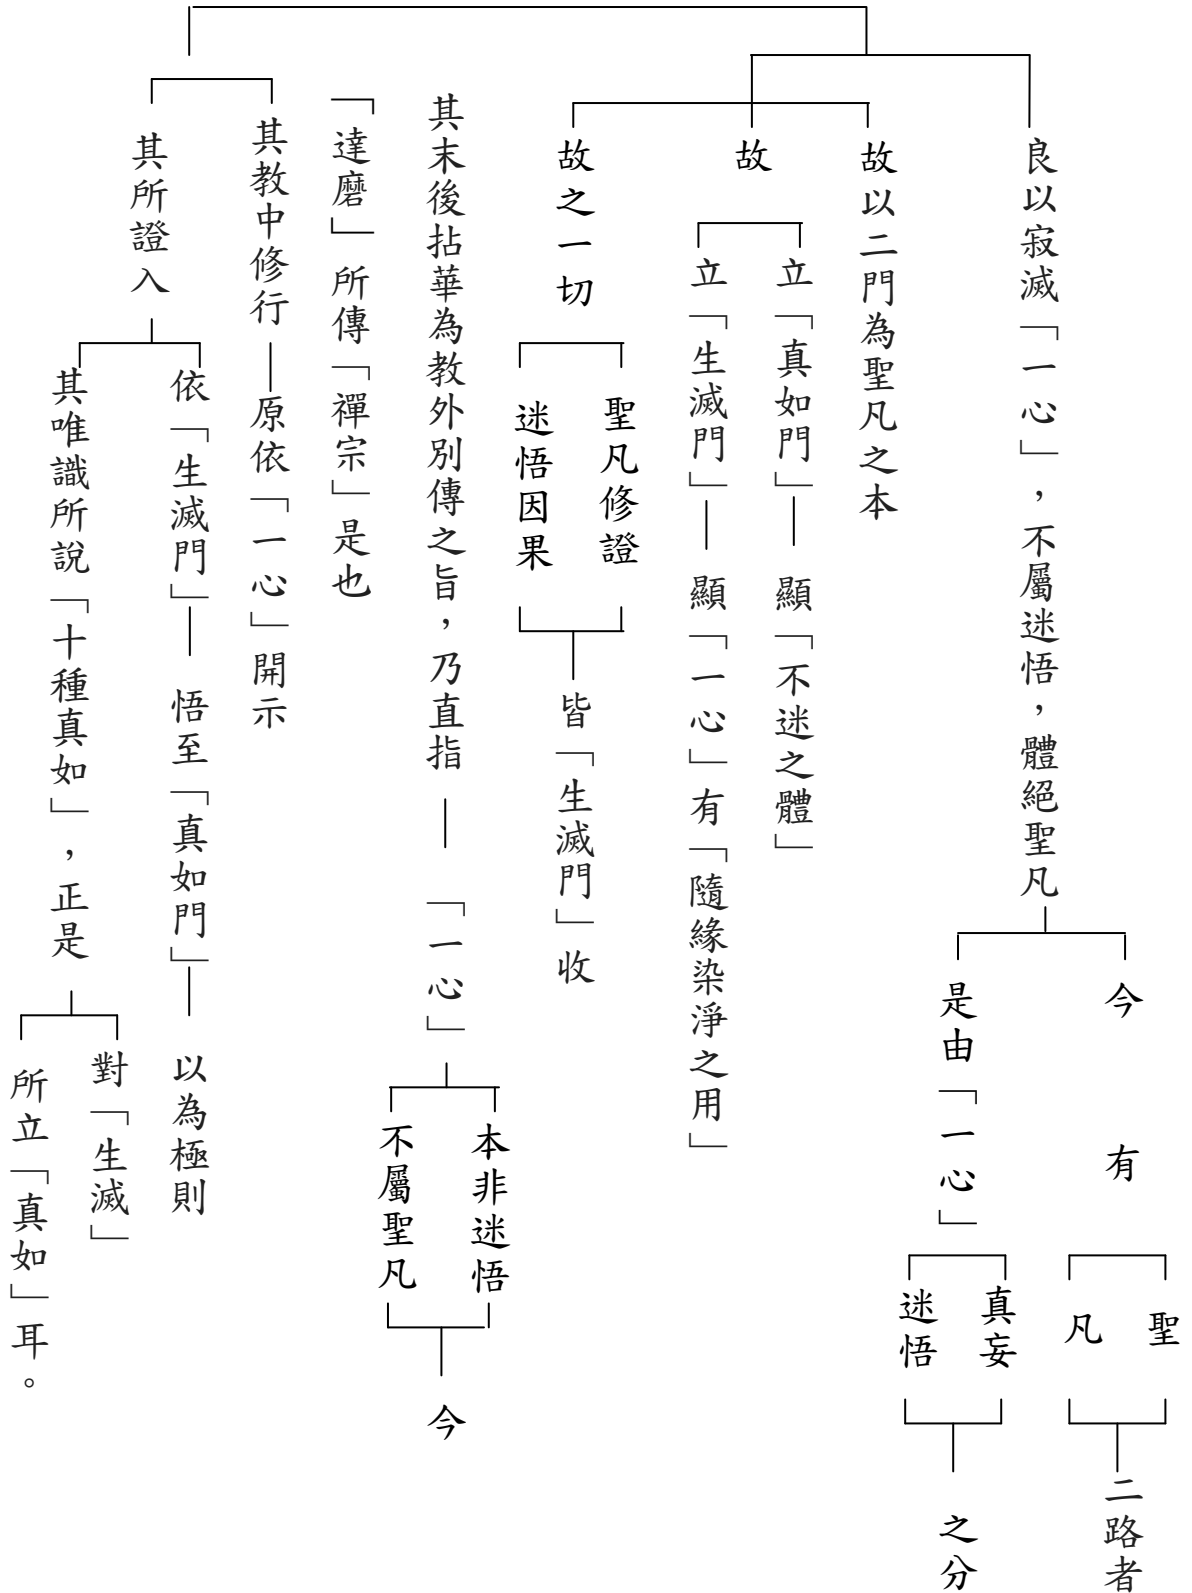 良以寂滅「一心」，不屬迷悟，體絕聖凡
今　有
聖
凡
二路者
是由「一心」
真妄
迷悟
之分
故以二門為聖凡之本
故
立「真如門」
顯「不迷之體」
立「生滅門」
顯「一心」有「隨緣染淨之用」
故之一切
聖凡修證
迷悟因果
皆「生滅門」收
其末後拈華為教外別傳之旨，乃直指
「一心」
本非迷悟
不屬聖凡
今
「達磨」所傳「禪宗」是也
其教中修行
原依「一心」開示
其所證入
依「生滅門」
悟至「真如門」
以為極則
其唯識所說「十種真如」，正是
對「生滅」
所立「真如」耳。